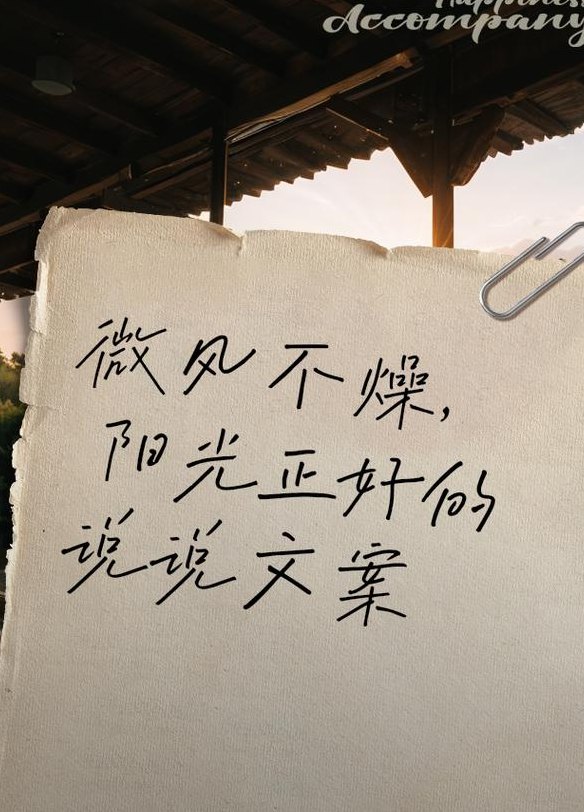 Happiness
Accompany
微风不燥,
阳光正好的
说说文案